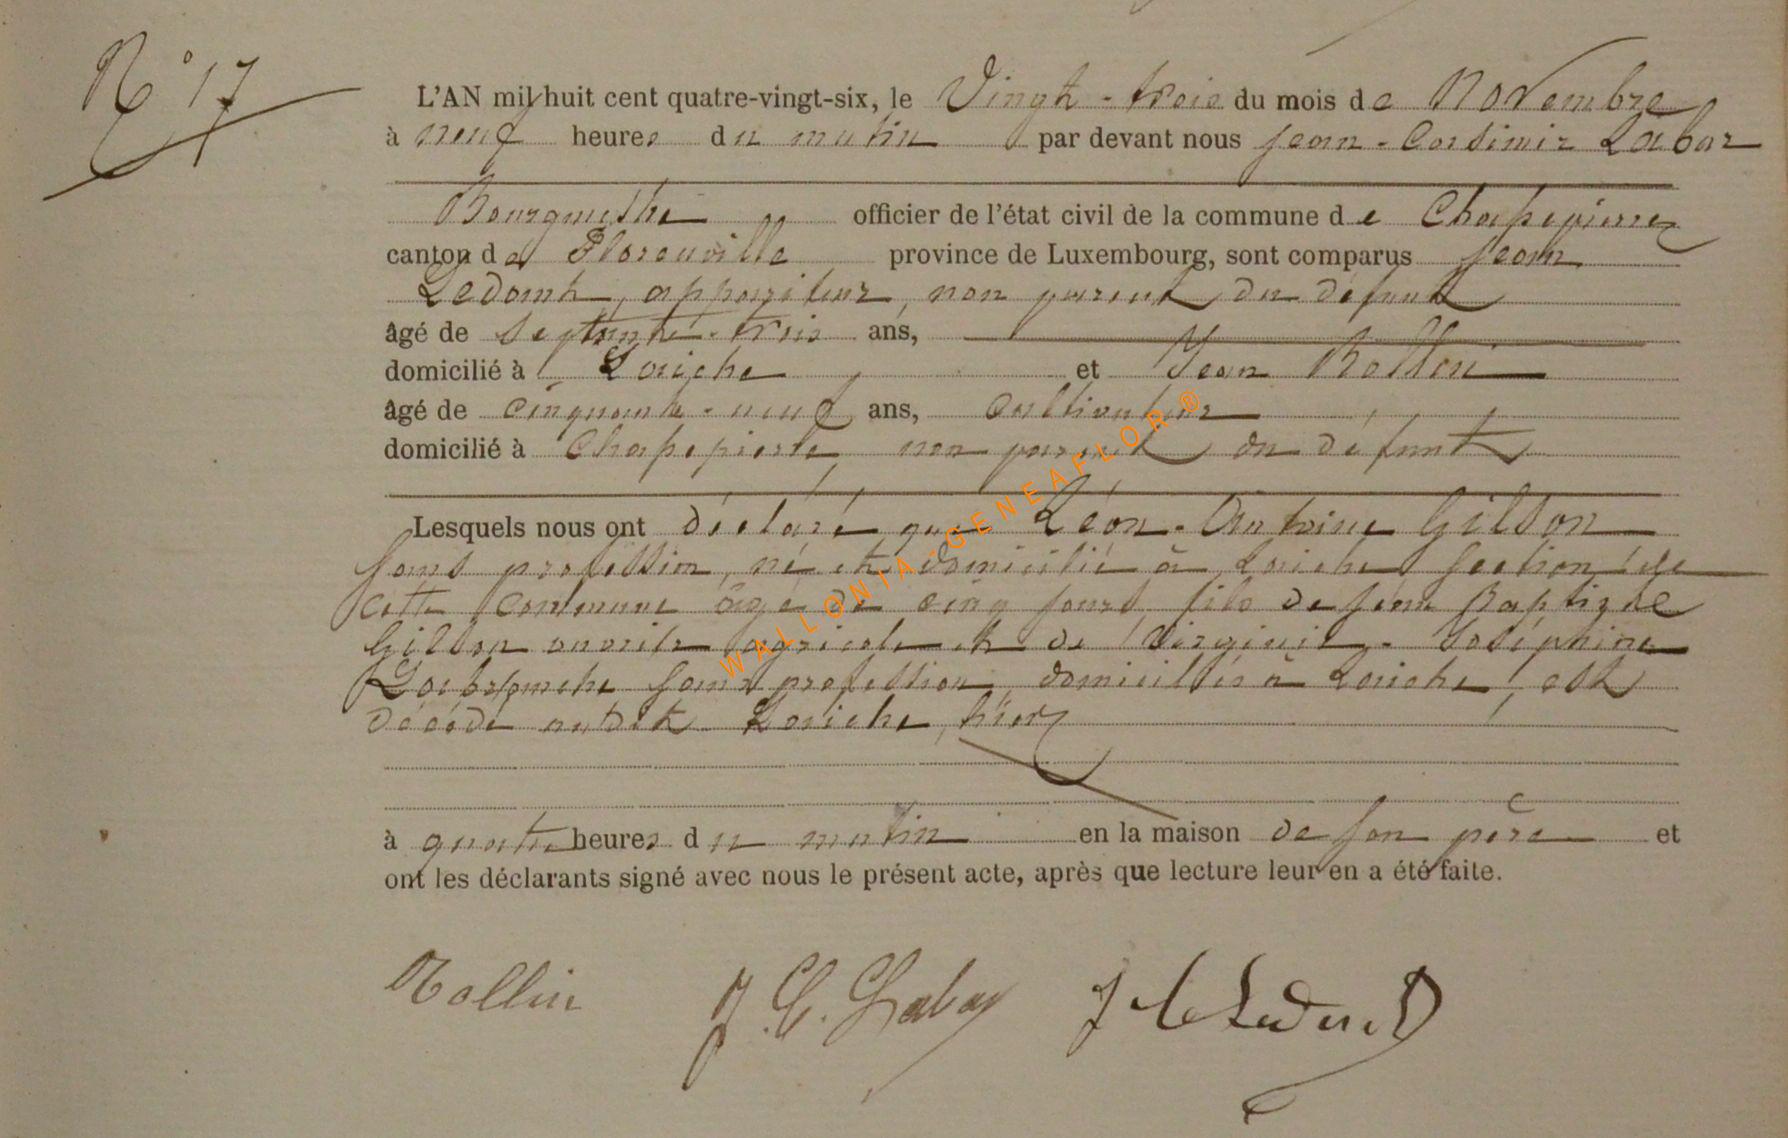 N° 17
L'AN mil huit cent quatre-vingt-six, le Vingt-trois du mois de Novembre
à neuf heures du matin par devant nous Jean-Casimir Labar
Bourgmestre officier de l'état civil de la commune de Chassepierre
canton de Florenville province de Luxembourg, sont comparus Jean
appariteur, non parent du défunt
âgé de septante-trois ans,
domicilié à Laiche et Jean Rollin
âgé de cinquante-neuf ans, cultivateur
domicilié à Chassepierre, non parent du défunt
Lesquels nous ont déclaré que Léon-Antoine Gilson
sans profession, né et domicilié à Laiche section de
cette commune âgé de cinq jours fils de Jean Baptiste
Gilson ouvrier agricole et de Virginie-Joséphine
sans profession, domiciliés à Laiche, est
décédé audit Laiche, hier
à quatre heures du matin en la maison de son père et
ont les déclarants signé avec nous le présent acte, après que lecture leur en a été faite.
Rollin J. C. Labar
WALLONIA-GENEAFLOR®